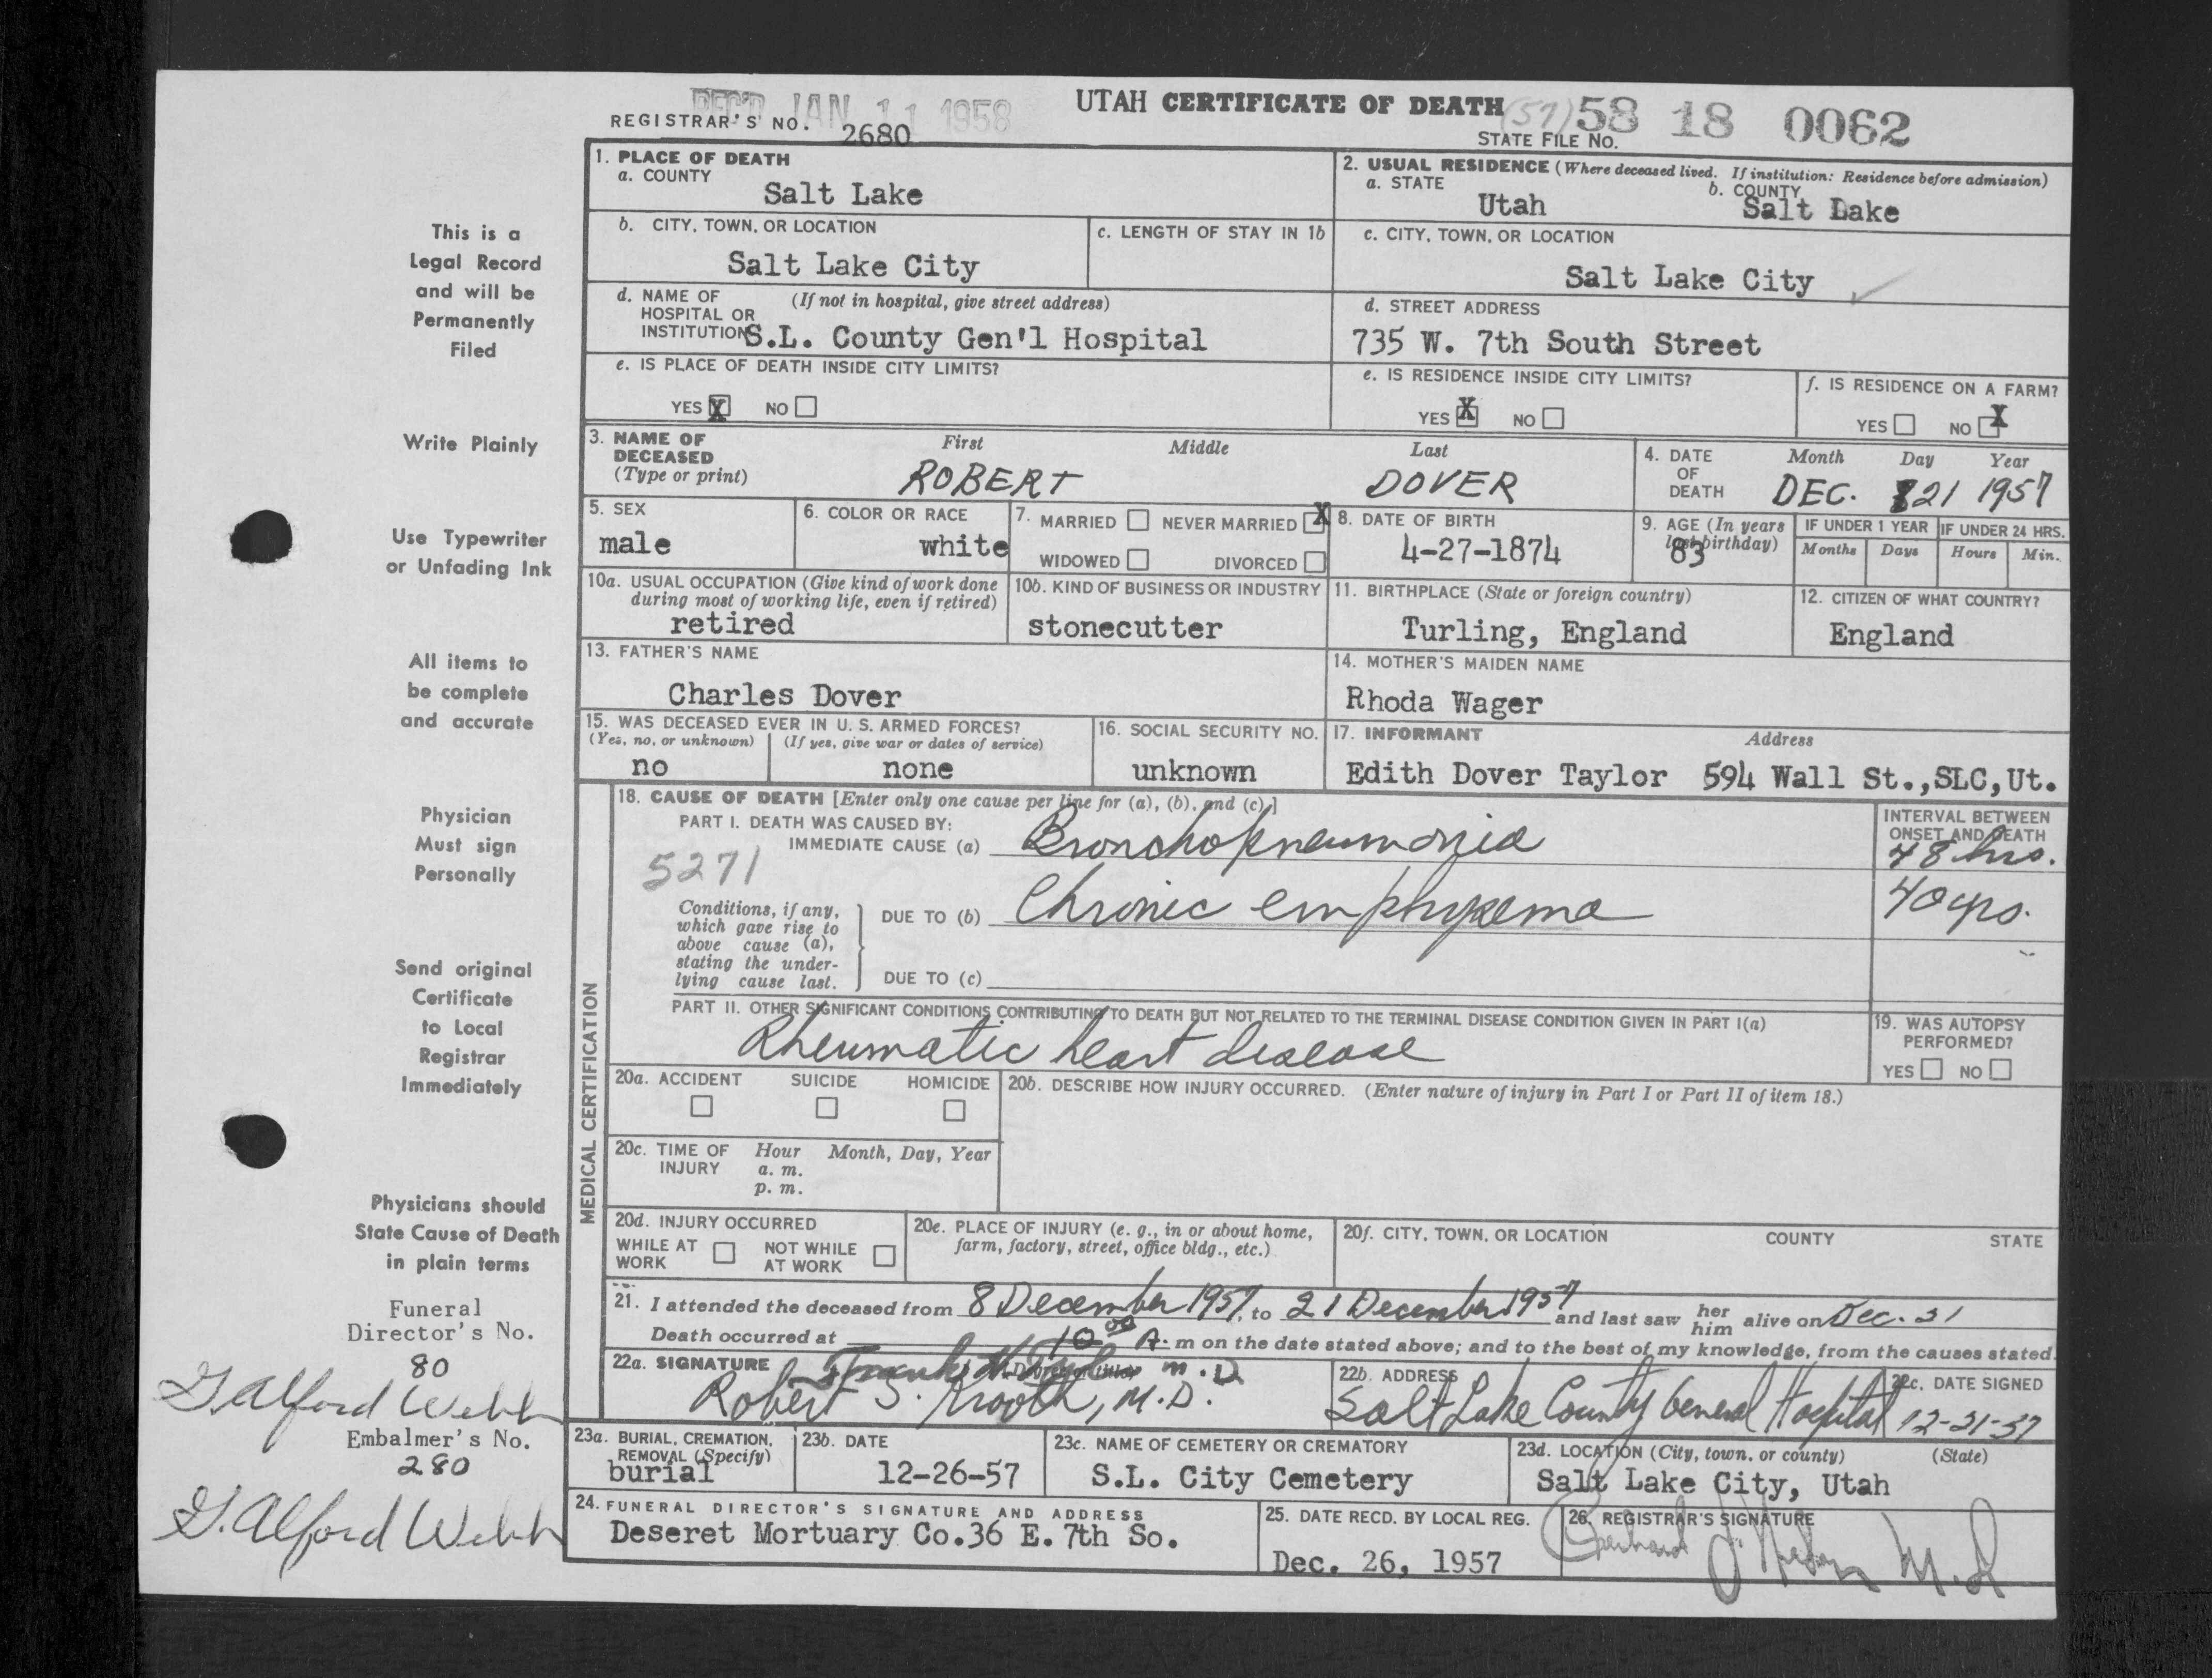 REC'D JAN 11 1958
UTAH CERTIFICATE OF DEATH
REGISTRAR'S NO. 2680
(57) 58 18 0062
STATE FILE NO.
This is a
Legal Record
and will be
Permanently
Filed
Write Plainly
Use Typewriter
or Unfading Ink
All items to
be complete
and accurate
Physician
Must sign
Personally
Send original
Certificate
to Local
Registrar
Immediately
Physicians should
State Cause of Death
in plain terms
Funeral
Director's No.
80
G Alford Webb
Embalmer's No.
280
G. Alford Webb
1. PLACE OF DEATH
a. COUNTY
Salt Lake
2. USUAL RESIDENCE (Where deceased lived. If institution: Residence before admission)
a. STATE
Utah
b. COUNTY
Salt Lake
b. CITY, TOWN, OR LOCATION
Salt Lake City
c. LENGTH OF STAY IN 1b
c. CITY, TOWN, OR LOCATION
Salt Lake City
d. NAME OF (If not in hospital, give street address)
HOSPITAL OR
INSTITUTION S.L. County Gen'l Hospital
d. STREET ADDRESS
735 W. 7th South Street
e. IS PLACE OF DEATH INSIDE CITY LIMITS?
YES X NO
e. IS RESIDENCE INSIDE CITY LIMITS?
YES X NO
f. IS RESIDENCE ON A FARM?
YES NO X
3. NAME OF First Middle Last
DECEASED
(Type or print) ROBERT DOVER
4. DATE Month Day Year
OF
DEATH DEC. 21 1957
5. SEX
male
6. COLOR OR RACE
white
7. MARRIED NEVER MARRIED X
WIDOWED DIVORCED
8. DATE OF BIRTH
4-27-1874
9. AGE (In years
last birthday)
83
IF UNDER 1 YEAR IF UNDER 24 HRS.
Months Days Hours Min.
10a. USUAL OCCUPATION (Give kind of work done
during most of working life, even if retired)
retired
10b. KIND OF BUSINESS OR INDUSTRY
stonecutter
11. BIRTHPLACE (State or foreign country)
Turling, England
12. CITIZEN OF WHAT COUNTRY?
England
13. FATHER'S NAME
Charles Dover
14. MOTHER'S MAIDEN NAME
Rhoda Wager
15. WAS DECEASED EVER IN U. S. ARMED FORCES?
(Yes, no, or unknown) (If yes, give war or dates of service)
no none
16. SOCIAL SECURITY NO.
unknown
17. INFORMANT Address
Edith Dover Taylor 594 Wall St.,SLC,Ut.
MEDICAL CERTIFICATION
18. CAUSE OF DEATH [Enter only one cause per line for (a), (b), and (c).]
PART I. DEATH WAS CAUSED BY:
IMMEDIATE CAUSE (a) Bronchopneumonia
INTERVAL BETWEEN
ONSET AND DEATH
48 hrs.
5271
Conditions, if any,
which gave rise to
above cause (a),
stating the under-
lying cause last.
DUE TO (b) Chronic emphysema
40 yrs.
DUE TO (c)
PART II. OTHER SIGNIFICANT CONDITIONS CONTRIBUTING TO DEATH BUT NOT RELATED TO THE TERMINAL DISEASE CONDITION GIVEN IN PART I(a)
Rheumatic heart disease
19. WAS AUTOPSY
PERFORMED?
YES NO
20a. ACCIDENT SUICIDE HOMICIDE
20b. DESCRIBE HOW INJURY OCCURRED. (Enter nature of injury in Part I or Part II of item 18.)
20c. TIME OF Hour Month, Day, Year
INJURY a. m.
p. m.
20d. INJURY OCCURRED
WHILE AT NOT WHILE
WORK AT WORK
20e. PLACE OF INJURY (e. g., in or about home,
farm, factory, street, office bldg., etc.)
20f. CITY, TOWN, OR LOCATION COUNTY STATE
21. I attended the deceased from 8 December 1957, to 21 December 1957 and last saw her him alive on Dec. 21
Death occurred at 10 00 A. m on the date stated above; and to the best of my knowledge, from the causes stated.
22a. SIGNATURE Frank H. M.D.
Robert S. Krooth, M.D.
22b. ADDRESS
Salt Lake County General Hospital
22c. DATE SIGNED
12-21-57
23a. BURIAL, CREMATION,
REMOVAL (Specify)
burial
23b. DATE
12-26-57
23c. NAME OF CEMETERY OR CREMATORY
S.L. City Cemetery
23d. LOCATION (City, town, or county) (State)
Salt Lake City, Utah
24. FUNERAL DIRECTOR'S SIGNATURE AND ADDRESS
Deseret Mortuary Co.36 E. 7th So.
25. DATE RECD. BY LOCAL REG.
Dec. 26, 1957
26. REGISTRAR'S SIGNATURE
M.D.